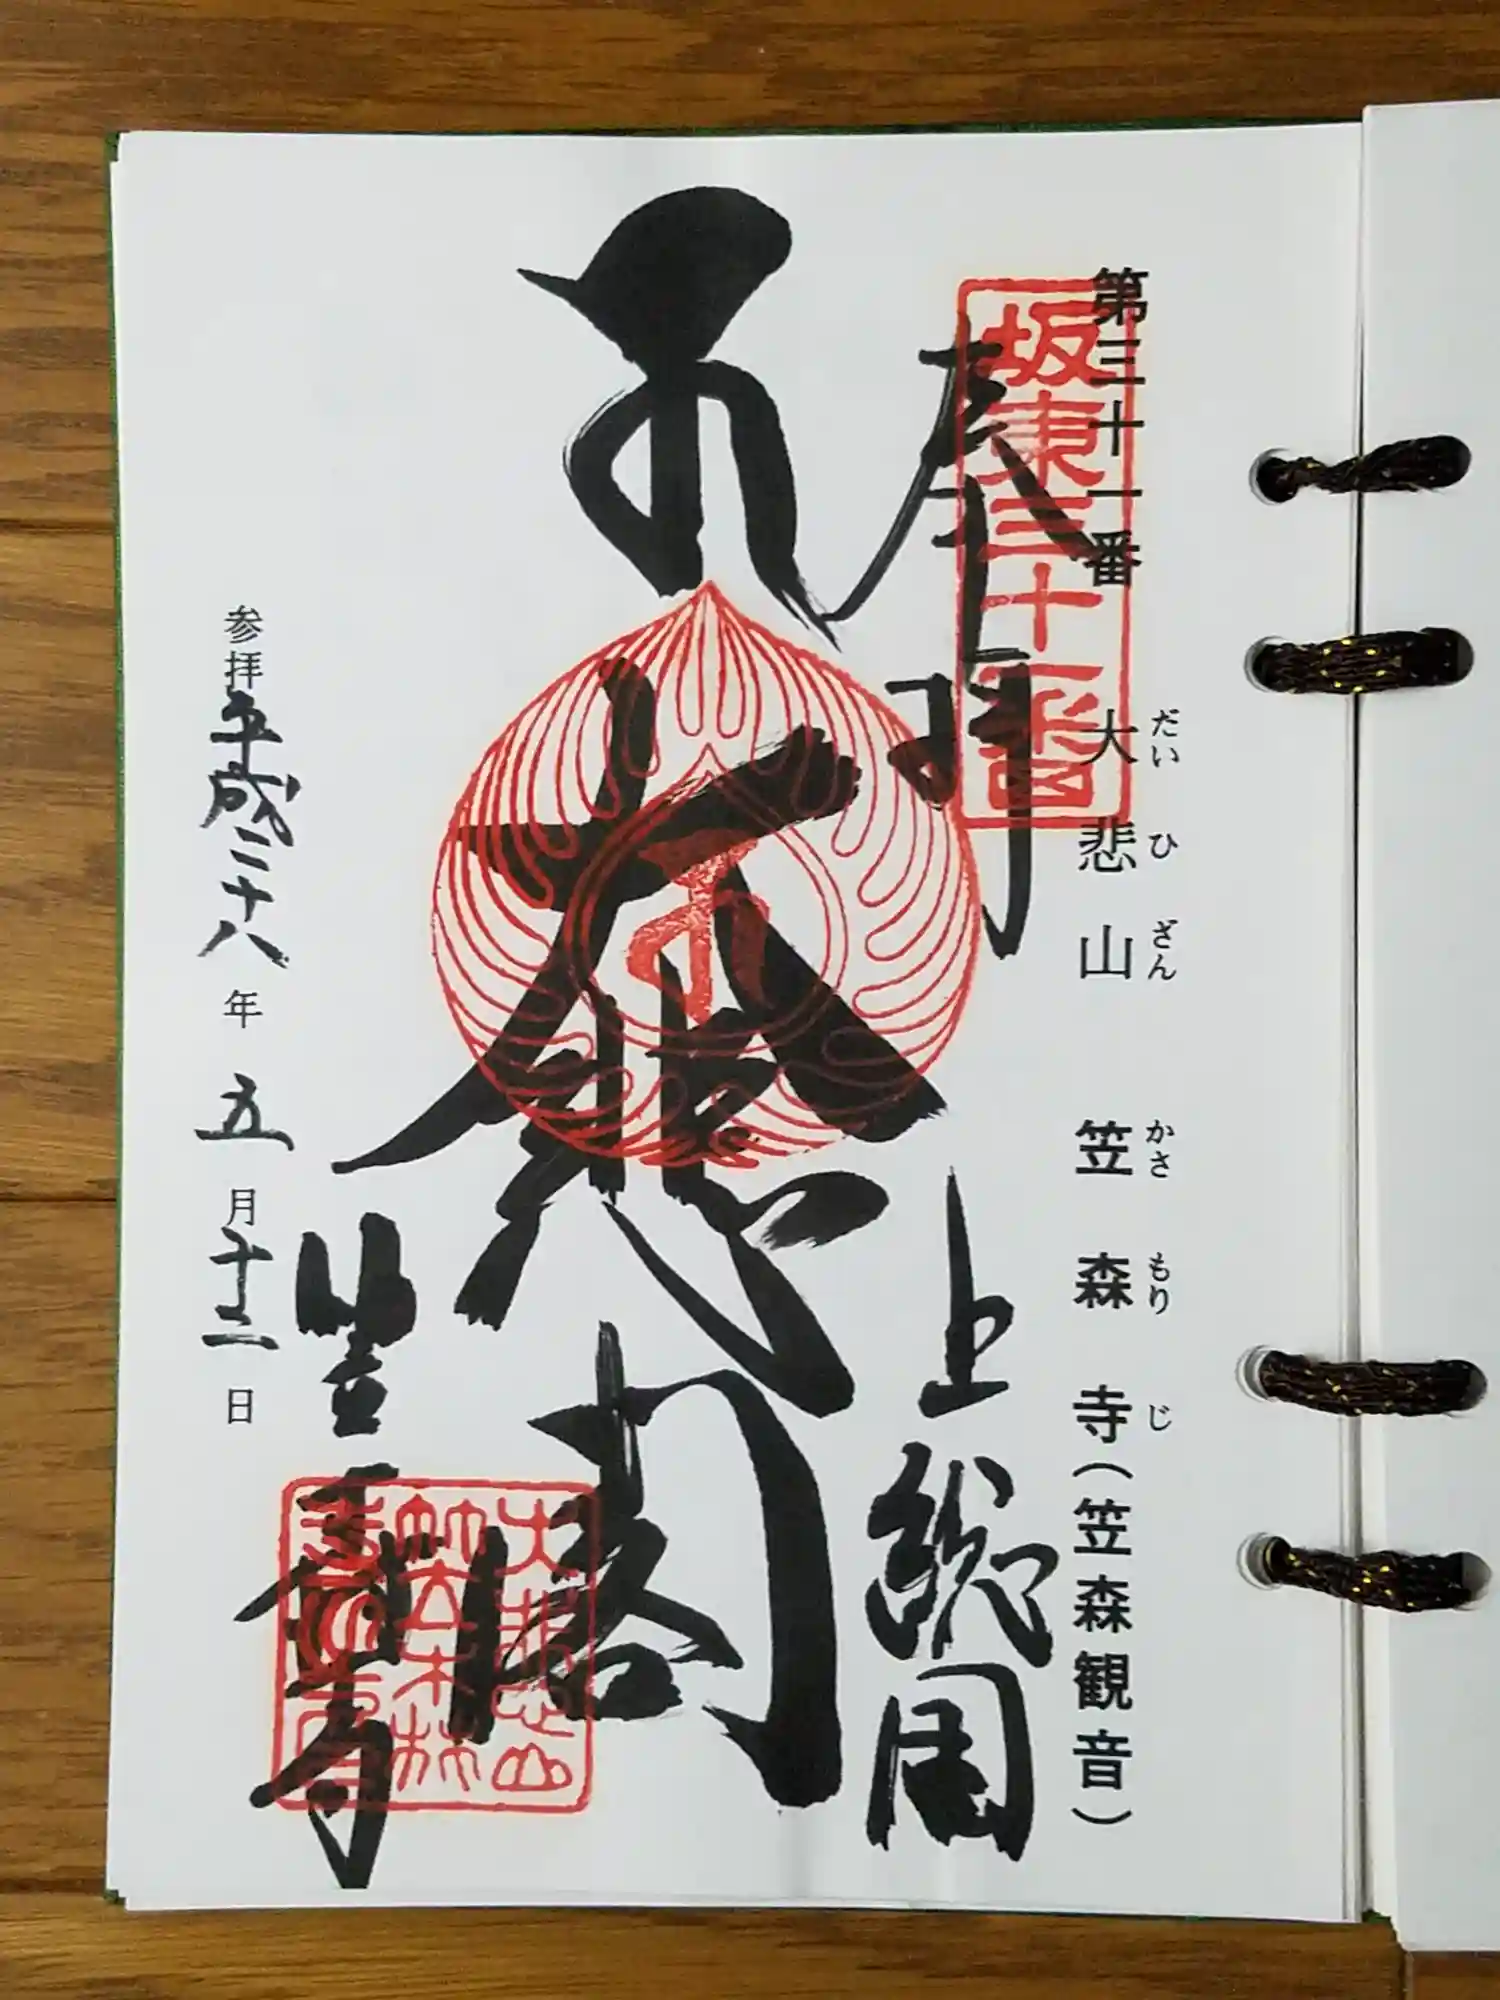 第三十一番
大悲山 笠森寺(笠森観音)
だいひざん かさもりじ
坂東三十一番
奉拝
上総国
大悲閣
大悲山
笠森
笠森寺
参拝平成二十八年五月十二日